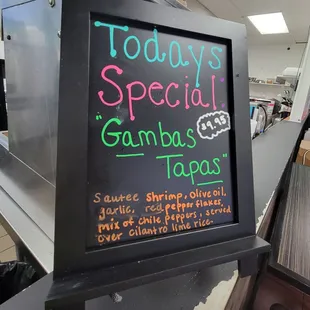 Todays
Special
"Gambas
$9.95
Tapas"
Sautee shrimp, Olive oil,
garlic, red pepper flakes,
mix of chile peppers, served
over cilantro lime rice.